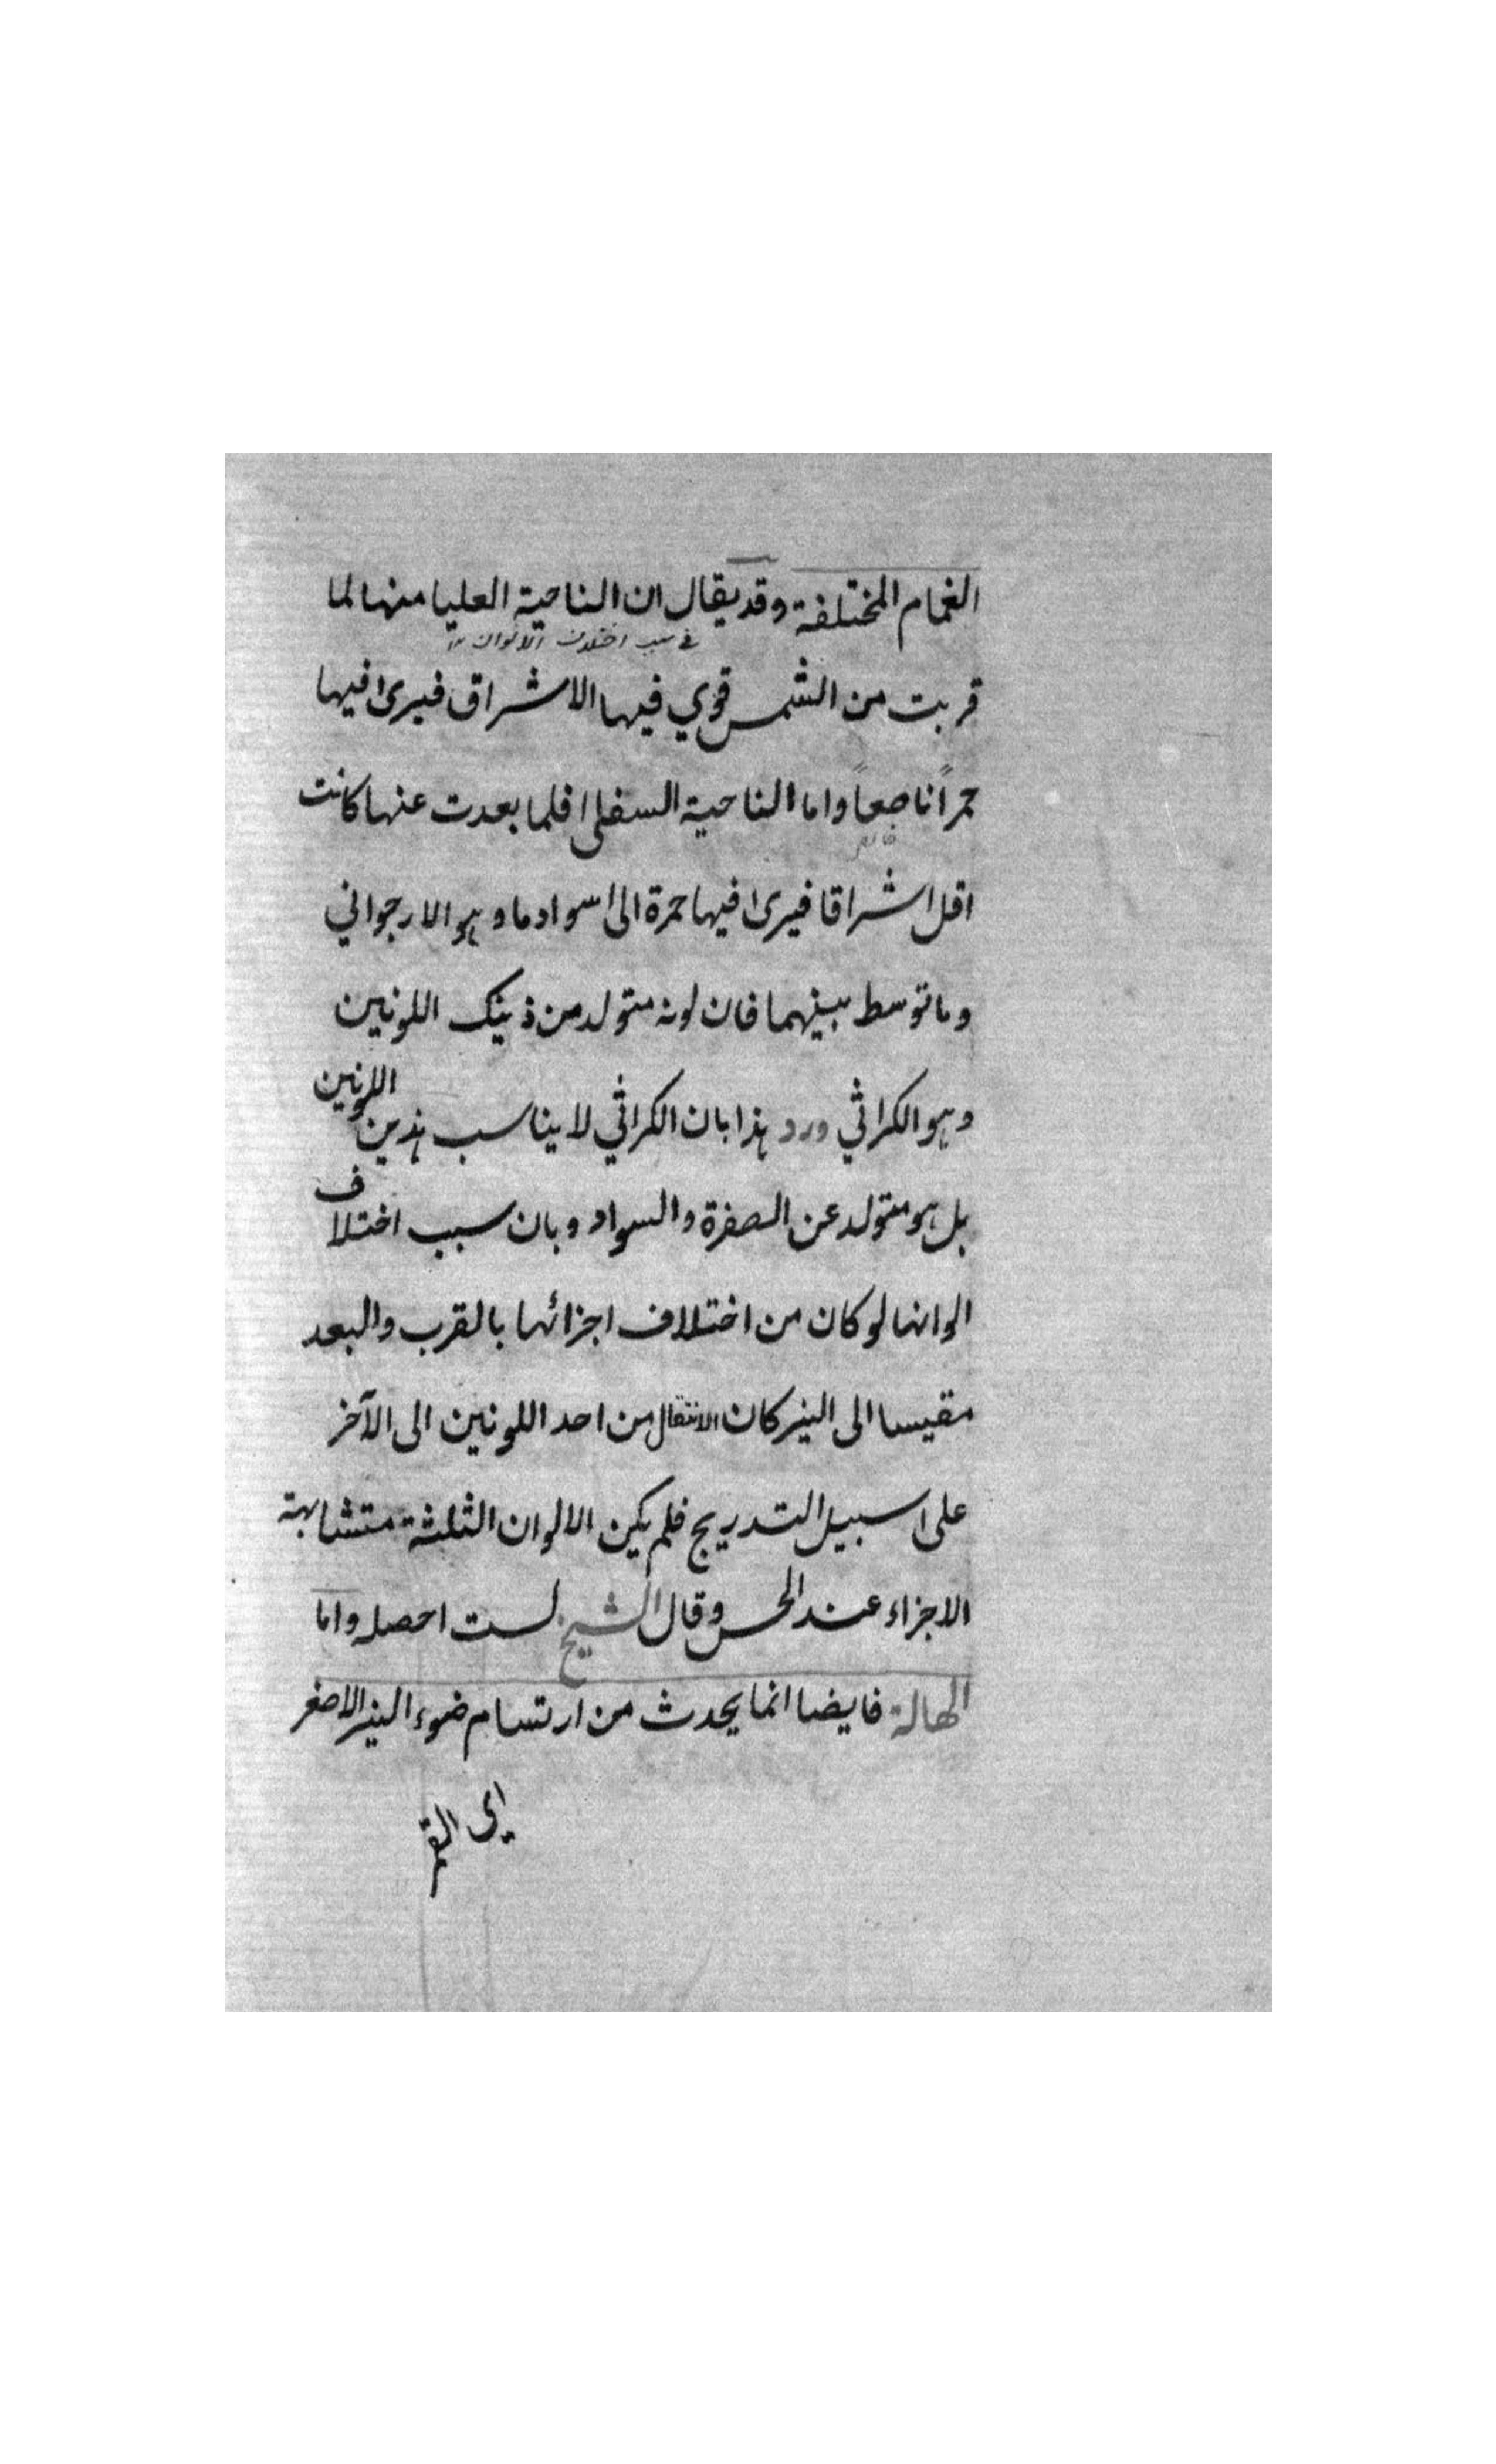 الغمام المختلفة وقد يقال ان الناحية العليا منها لما
في سبب اختلاف الالوان
قربت من الشمس قوي فيها الاشراق فيرى فيها
حمرًا ناصعًا واما الناحية السفلى فلما بعدت عنها كانت
اقل اشراقا فيرى فيها حمرة الى سواد ما وهو الارجواني
وما توسط بينهما فان لونه متولد من ذينك اللونين
وهو الكراثي ورد هذا بان الكراثي لا يناسب هذين اللونين
بل هو متولد عن الصفرة والسواد وبان سبب اختلاف
الوانها لو كان من اختلاف اجزائها بالقرب والبعد
مقيسا الى النير كان الانتقال من احد اللونين الى الآخر
على سبيل التدريج فلم يكن الالوان الثلثة متشابهة
الاجزاء عند الحس وقال الشيخ لست احصله واما
الهالة فايضا انما يحدث من ارتسام ضوء النير الاصغر
اي القمر